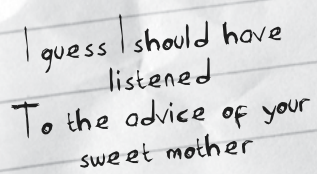 I guess I should have
listened
To the advice of your
sweet mother